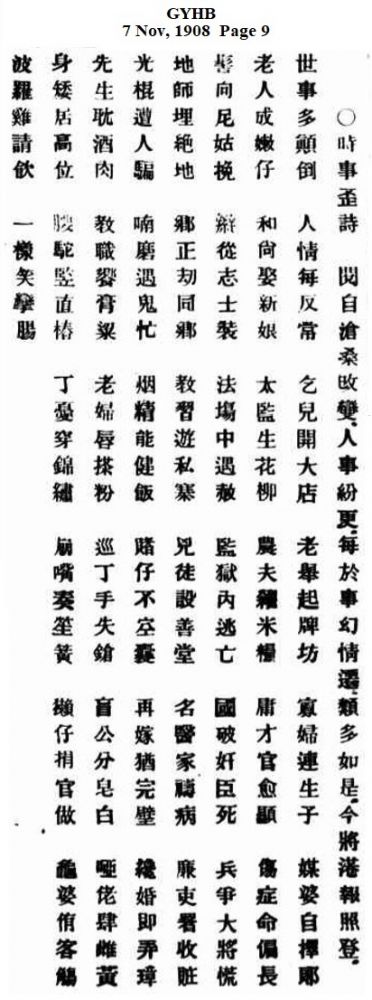 GYHB
7 Nov, 1908 Page 9
○時事歪詩 閱自滄桑改變。人事紛更。每於事幻情遷。類多如是。今將港報照登。
世事多顛倒 人情每反常 乞兒開大店 老舉起牌坊 寡婦連生子 媒婆自擇郎
老人成嫩仔 和尚娶新娘 太監生花柳 農夫糴米糧 庸才官愈顯 傷症命偏長
髻向尼姑挽 辮從志士裝 法場中遇赦 監獄內逃亡 國破奸臣死 兵爭大將慌
地師埋絕地 鄉正刼同鄉 教習遊私寨 兇徒設善堂 名醫家禱病 廉吏署收賍
光棍遭人騙 喃磨遇鬼忙 烟精能健飯 賭仔不空囊 再嫁猶完璧 纔婚即弄璋
先生耽酒肉 教職饗膏粱 老婦唇搽粉 巡丁手失鎗 盲公分皂白 啞佬肆雌黃
身矮居高位 駝竪直樁 丁憂穿錦繡 崩嘴奏笙簧 仔捐官做 龜婆侑客觴
波羅雞請飲 一樣笑攣腸